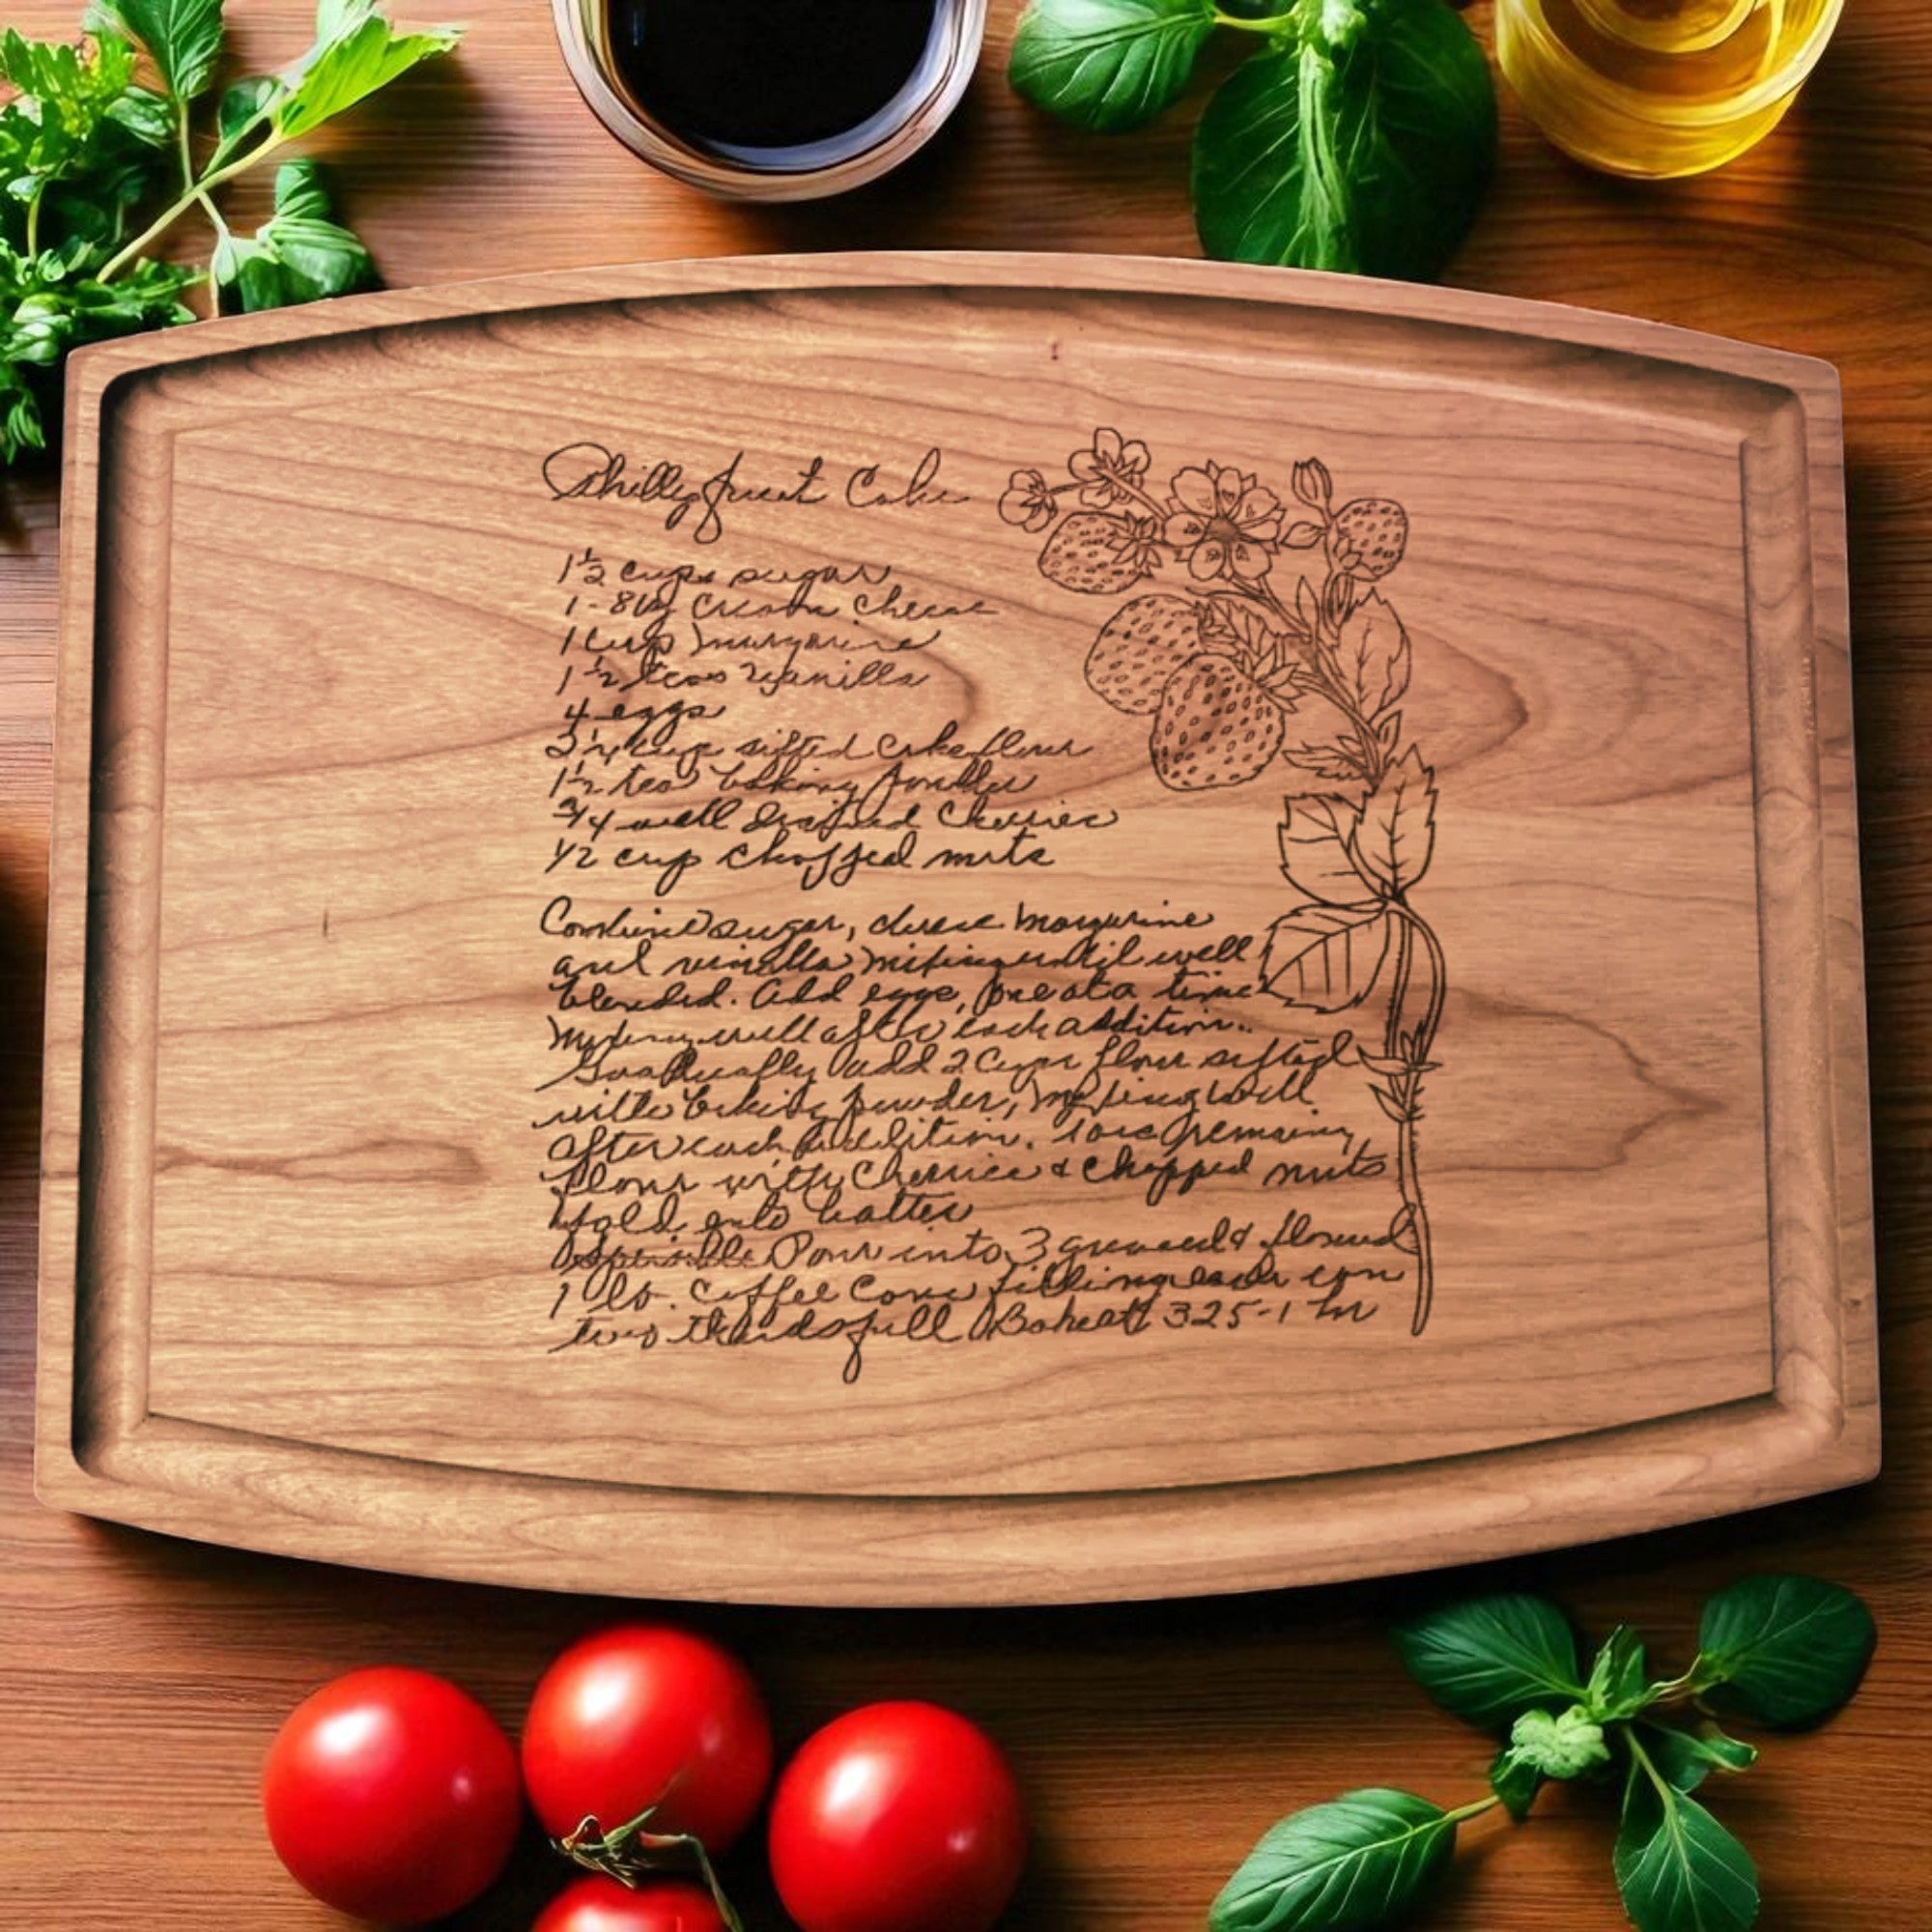 Philly fruit Cake
1½ cups sugar
1-8oz Cream Cheese
1 Cup margarine
1½ teas Vanilla
4 eggs
2¼ cups sifted Cake flour
1½ tea baking powder
3/4 well drained Cherries
1/2 cup chopped nuts
Combine sugar, cheese margarine
and vanilla mixing until well
blended. Add eggs, one at a time
mixing well after each addition.
Gradually add 2 Cups flour sifted
with baking powder, mixing well
after each addition. Toss remaining
flour with Cherries & chopped nuts
fold into batter
Pour into 3 greased & floured
1 lb. Coffee Cans filling each can
two thirds full Bake at 325-1 hr